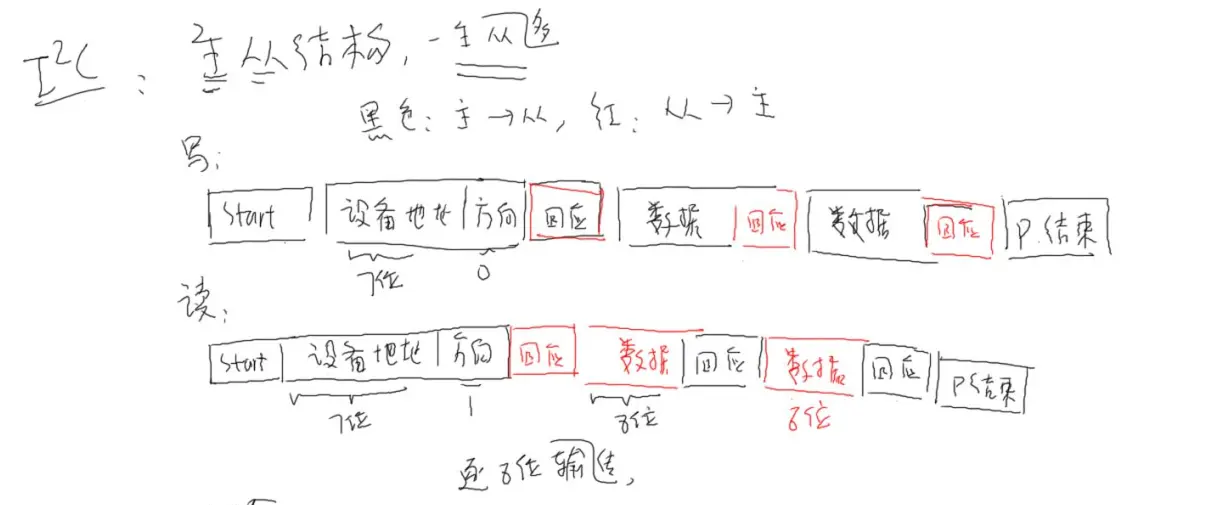 I²C: 主从结构, 一主从多
黑色: 主→从, 红: 从→主
写:
Start 设备地址 方向 回应 数据 回应 数据 回应 P 结束
7位 0
读:
Start 设备地址 方向 回应 数据 回应 数据 回应 P 结束
7位 1 8位 8位
逐8位输传,